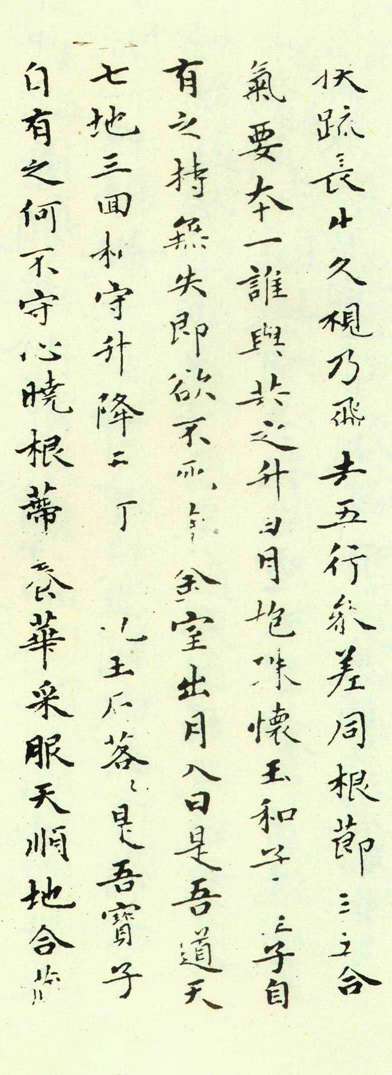 扶疏長生久視乃飛去五行參差同根節三五合
氣要本一誰與共之升日月抱珠懷玉和子子自
有之持無失即欲不死金室出月入日是吾道天
七地三回相守升降王石落〻是吾寶子
自有之何不守心曉根蔕養華采服天順地合藏